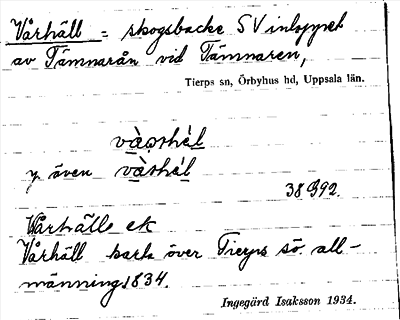 Vårhäll = skogsbacke SV inloppet
av Tämnarån vid Tämnaren,
Tierps sn, Örbyhus hd, Uppsala län.
våṣthé̩l
y även våṣthé̩l
38 G92.
Warhälle ek
Vårhäll karta över Tierps sö. all-
männing 1834.
Ingegärd Isaksson 1934.